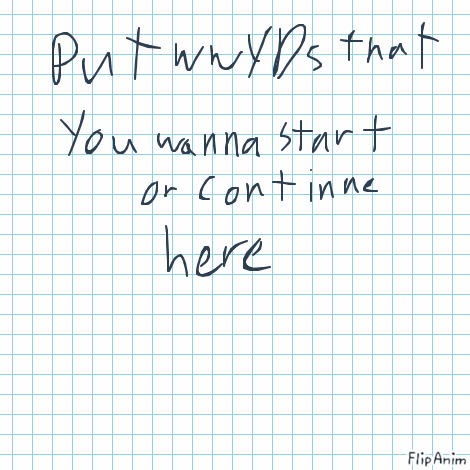 Put WWYDs that
You wanna start
or continue
here
FlipAnim